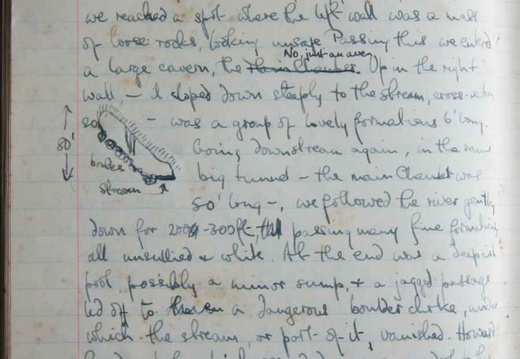 we reached a spot where the left wall was a mass
of loose rocks, looking unsafe. Passing this we entered
No, just an aven
a large cavern, the Main Chamber. Up in the right
wall – it sloped down steeply to the stream, cross-section
so – was a group of lovely formations 6' long.
80'
boulders
stream
Going downstream again, in the same
big tunnel – the main Chamber was
50' long –, we followed the river gently
down for 200-300ft, passing many fine formations
all unsullied & white. At the end was a deepish
pool, possibly a minor sump, & a jagged passage
led off to a dangerous boulder choke, under
which the stream, or part of it, vanished. Howard